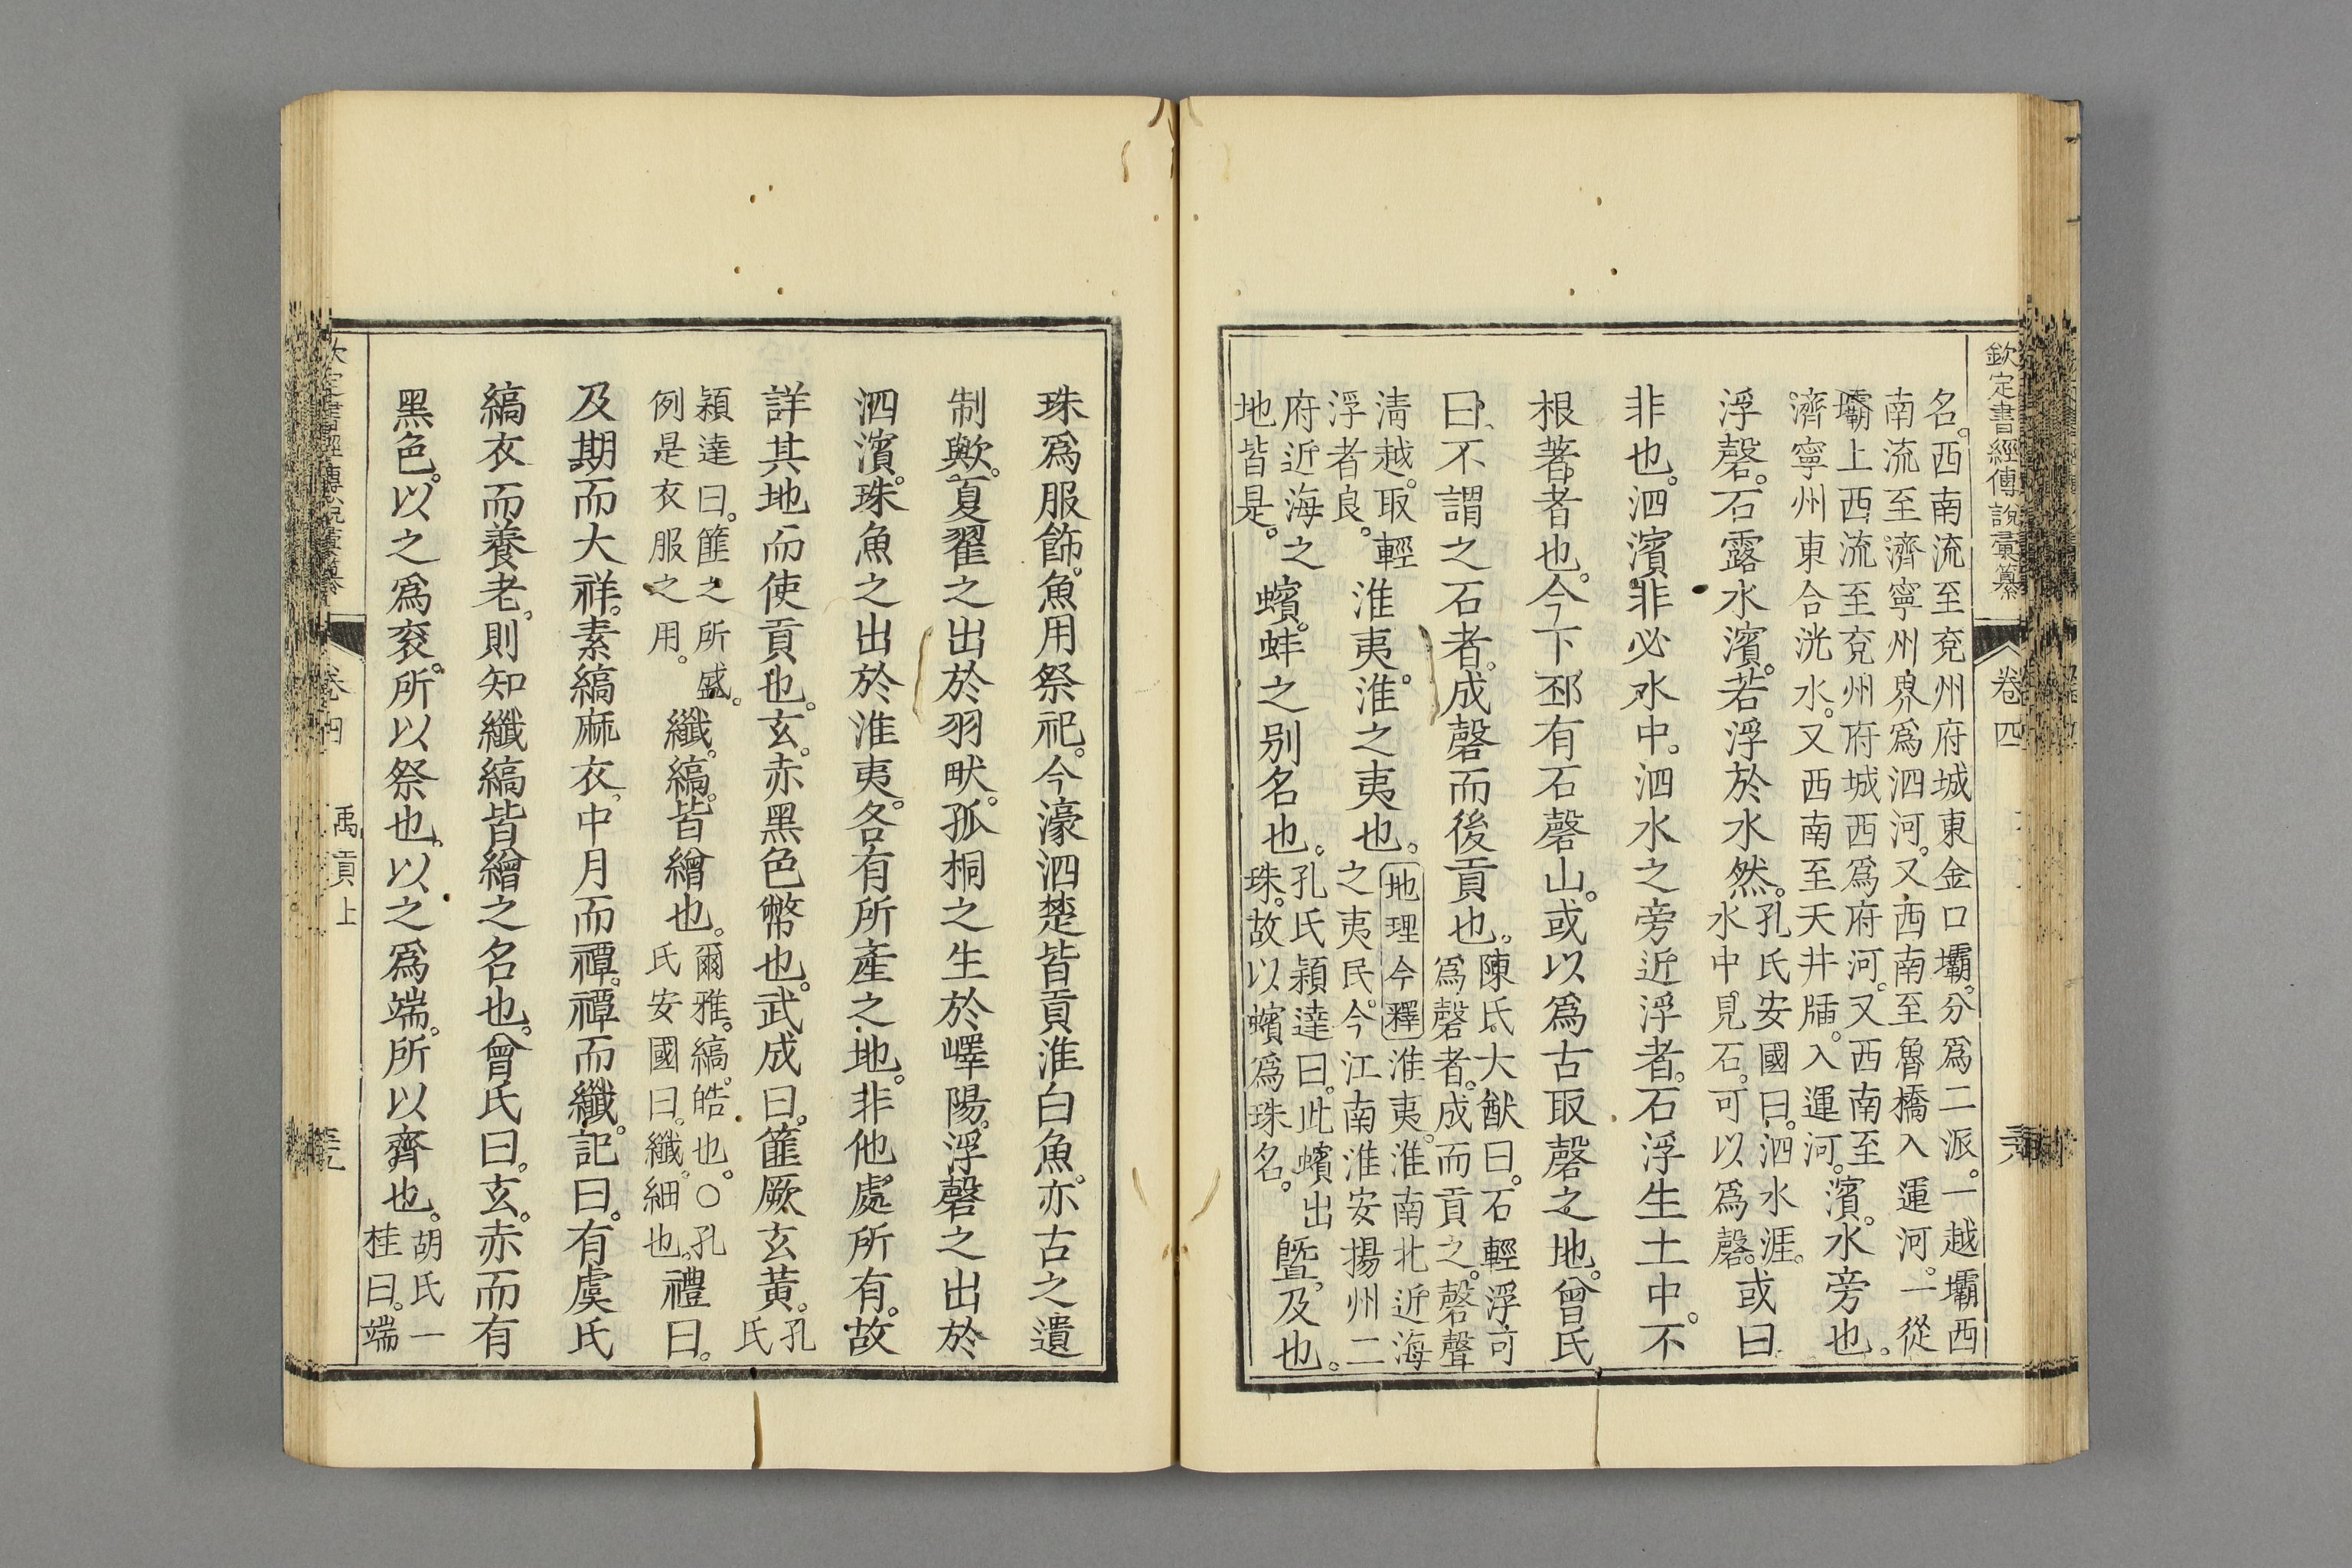 欽定書經傳說彙纂 卷四
名。西南流至兗州府城東金口壩。分爲二派。一越壩西
南流至濟寧州界爲泗河。又西南至魯橋入運河。一從
壩上西流至兗州府城西爲府河。又西南至
濟寧州東合洸水。又西南至天井牐。入運河。
濱。水旁也。
浮磬。石露水濱。若浮於水然。
孔氏安國曰。泗水涯。
水中見石。可以爲磬。
或曰
非也。泗濱非必水中。泗水之旁近浮者。石浮生土中。不
根著者也。今下邳有石磬山。或以爲古取磬之地。曾氏
曰。不謂之石者。成磬而後貢也。
陳氏大猷曰。石輕浮可
爲磬者。成而貢之。磬聲
清越。取輕
浮者良。
淮夷。淮之夷也。
地理今釋淮夷。淮南北近海
之夷民。今江南淮安揚州二
府近海之
地皆是。
蠙。蚌之別名也。
孔氏穎達曰。此蠙出
珠。故以蠙爲珠名。
曁。及也。
珠爲服飾。魚用祭祀。今濠泗楚皆貢淮白魚。亦古之遺
制歟。夏翟之出於羽畎。孤桐之生於嶧陽。浮磬之出於
泗濱。珠魚之出於淮夷。各有所產之地。非他處所有。故
詳其地而使貢也。玄。赤黑色幣也。武成曰。篚厥玄黃。
孔
氏
穎達曰。篚之所盛。
例是衣服之用。
纖。縞。皆繒也。
爾雅。縞。皓也。○孔
氏安國曰。纖。細也。
禮曰。
及期而大祥。素縞麻衣。中月而禫。禫而纖。記曰。有虞氏
縞衣而養老。則知纖縞皆繒之名也。曾氏曰。玄。赤而有
黑色。以之爲袞。所以祭也。以之爲端。所以齊也。
胡氏一
桂曰。端
卷四 禹貢上